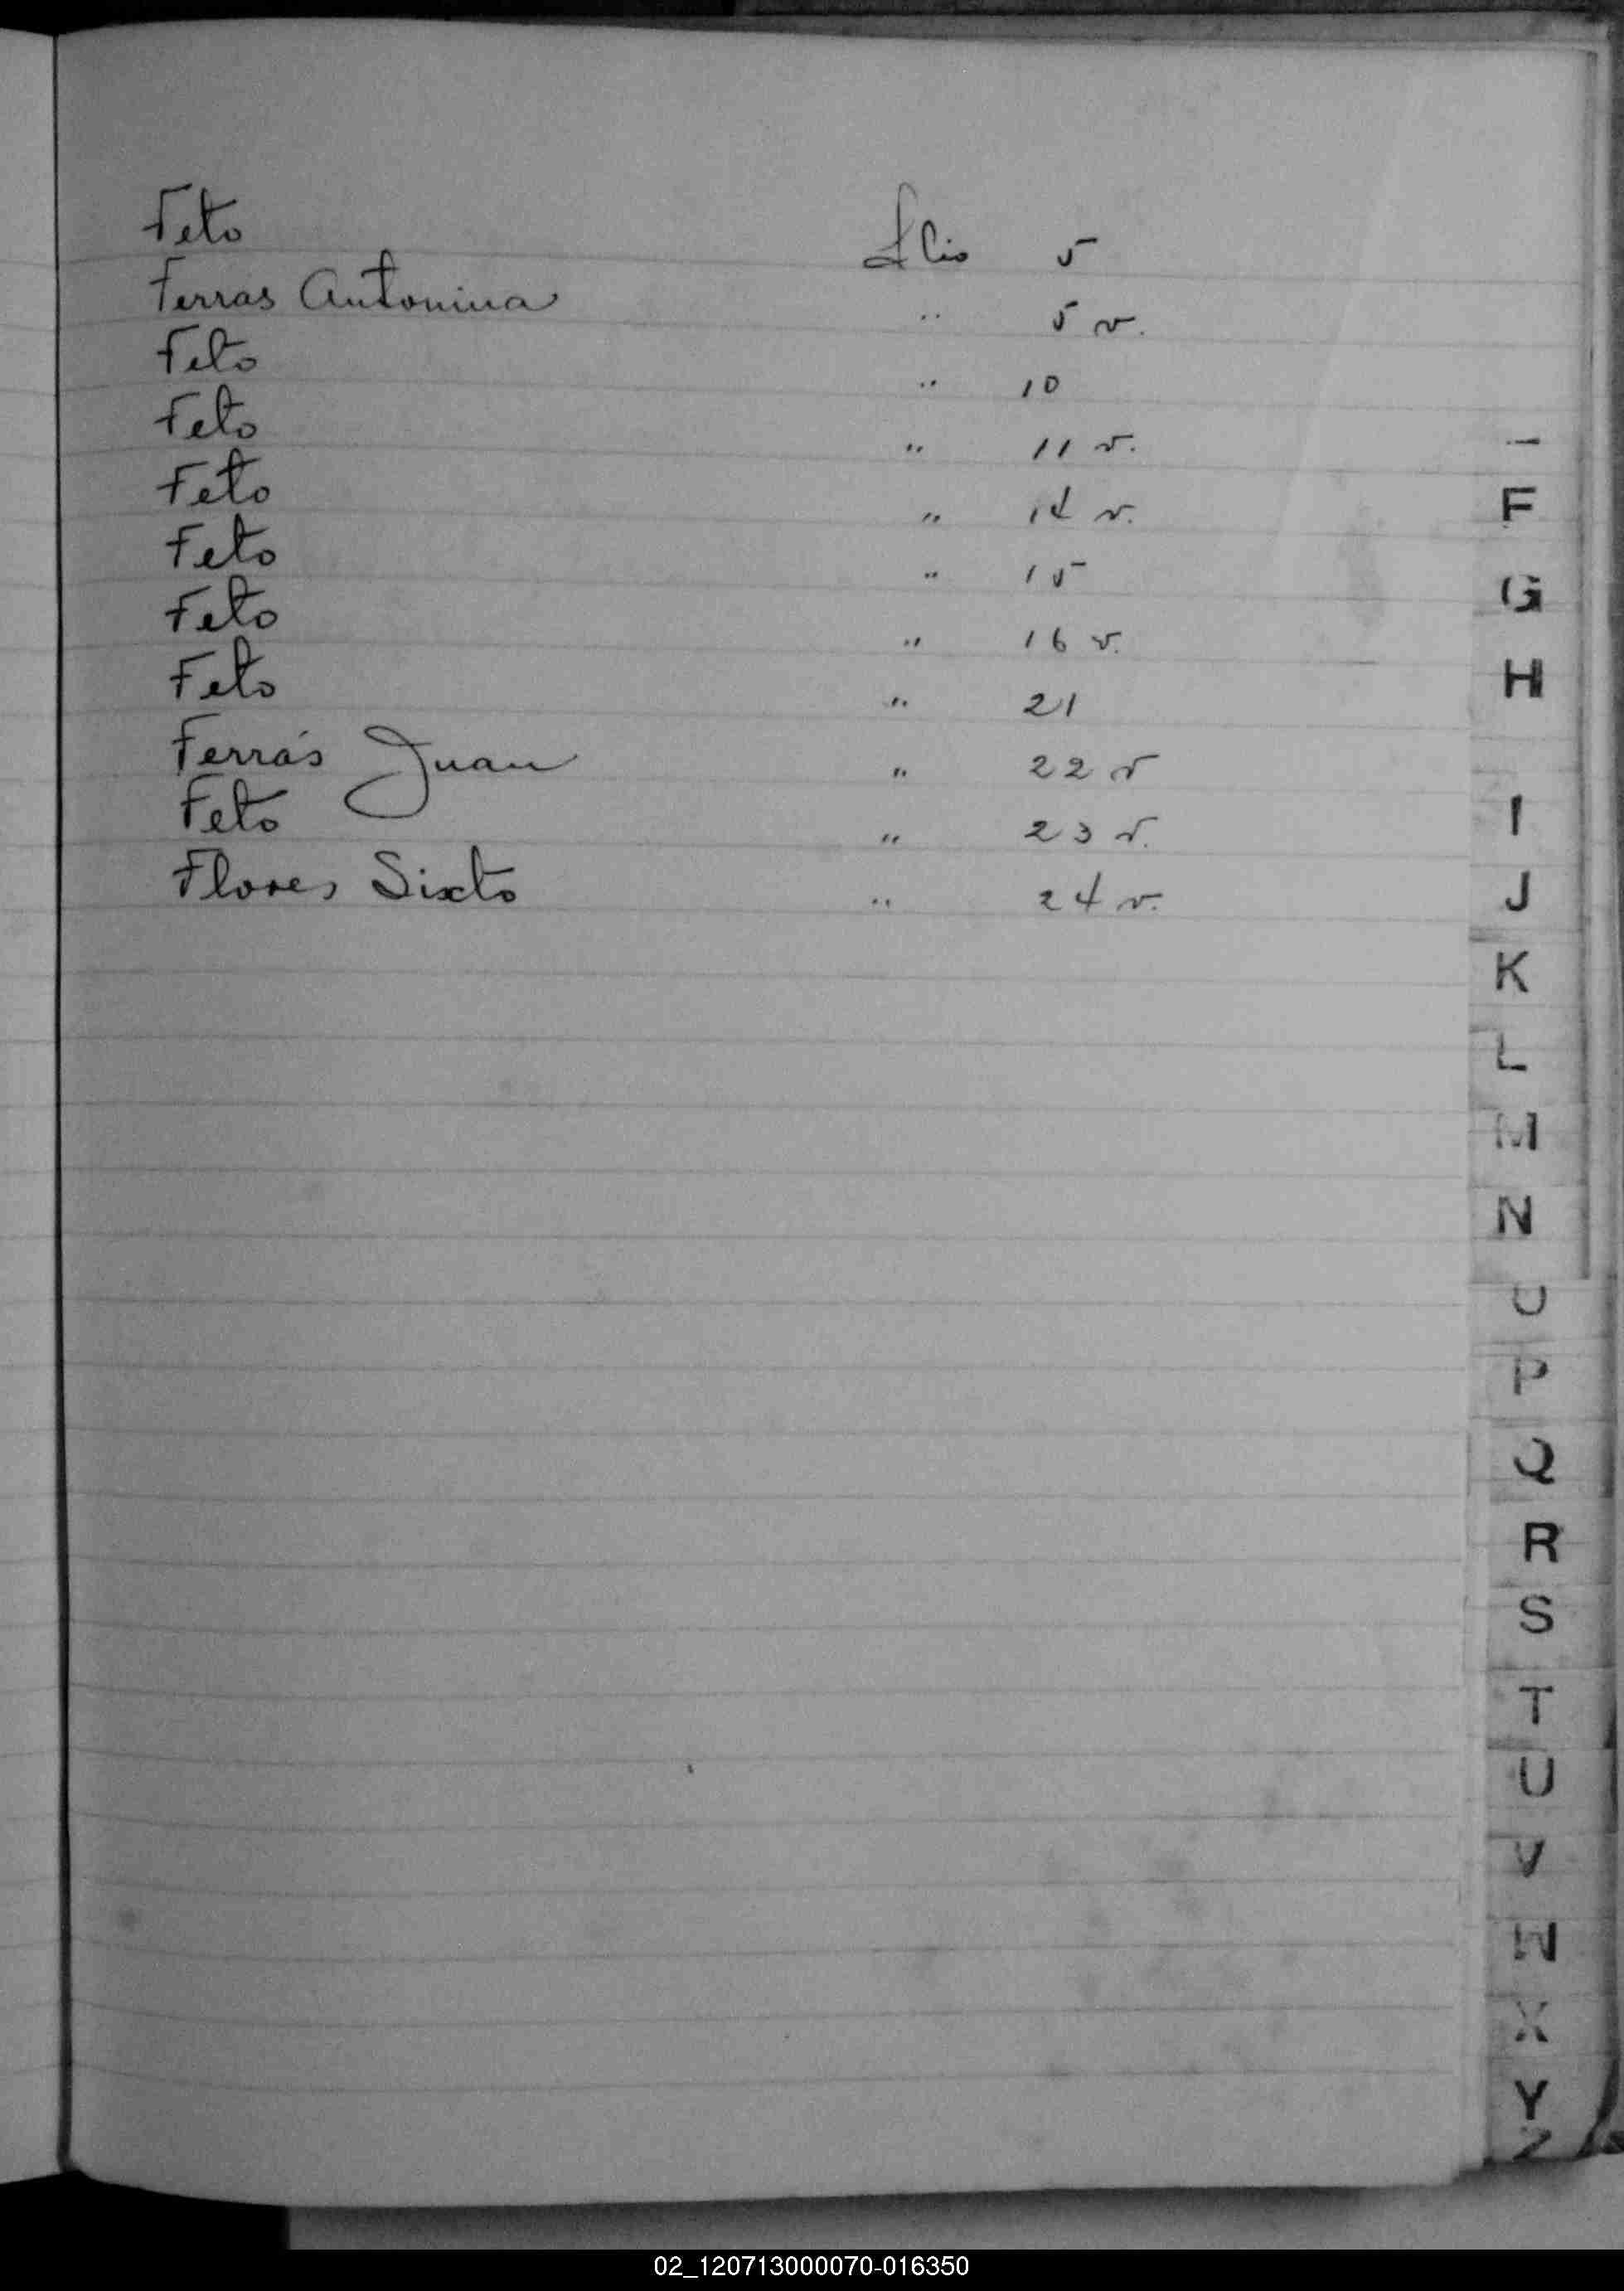 Feto flio 5
Ferrás Antonina " 5 v.
Feto " 10
Feto " 11 v.
Feto " 14 v.
Feto " 15
Feto " 16 v.
Feto " 21
Ferrás Juan " 22 v
Feto " 23 v.
Flores Sixto " 24 v.
F
G
H
I
J
K
L
M
N
O
P
Q
R
S
T
U
V
W
X
Y
Z
02_120713000070-016350